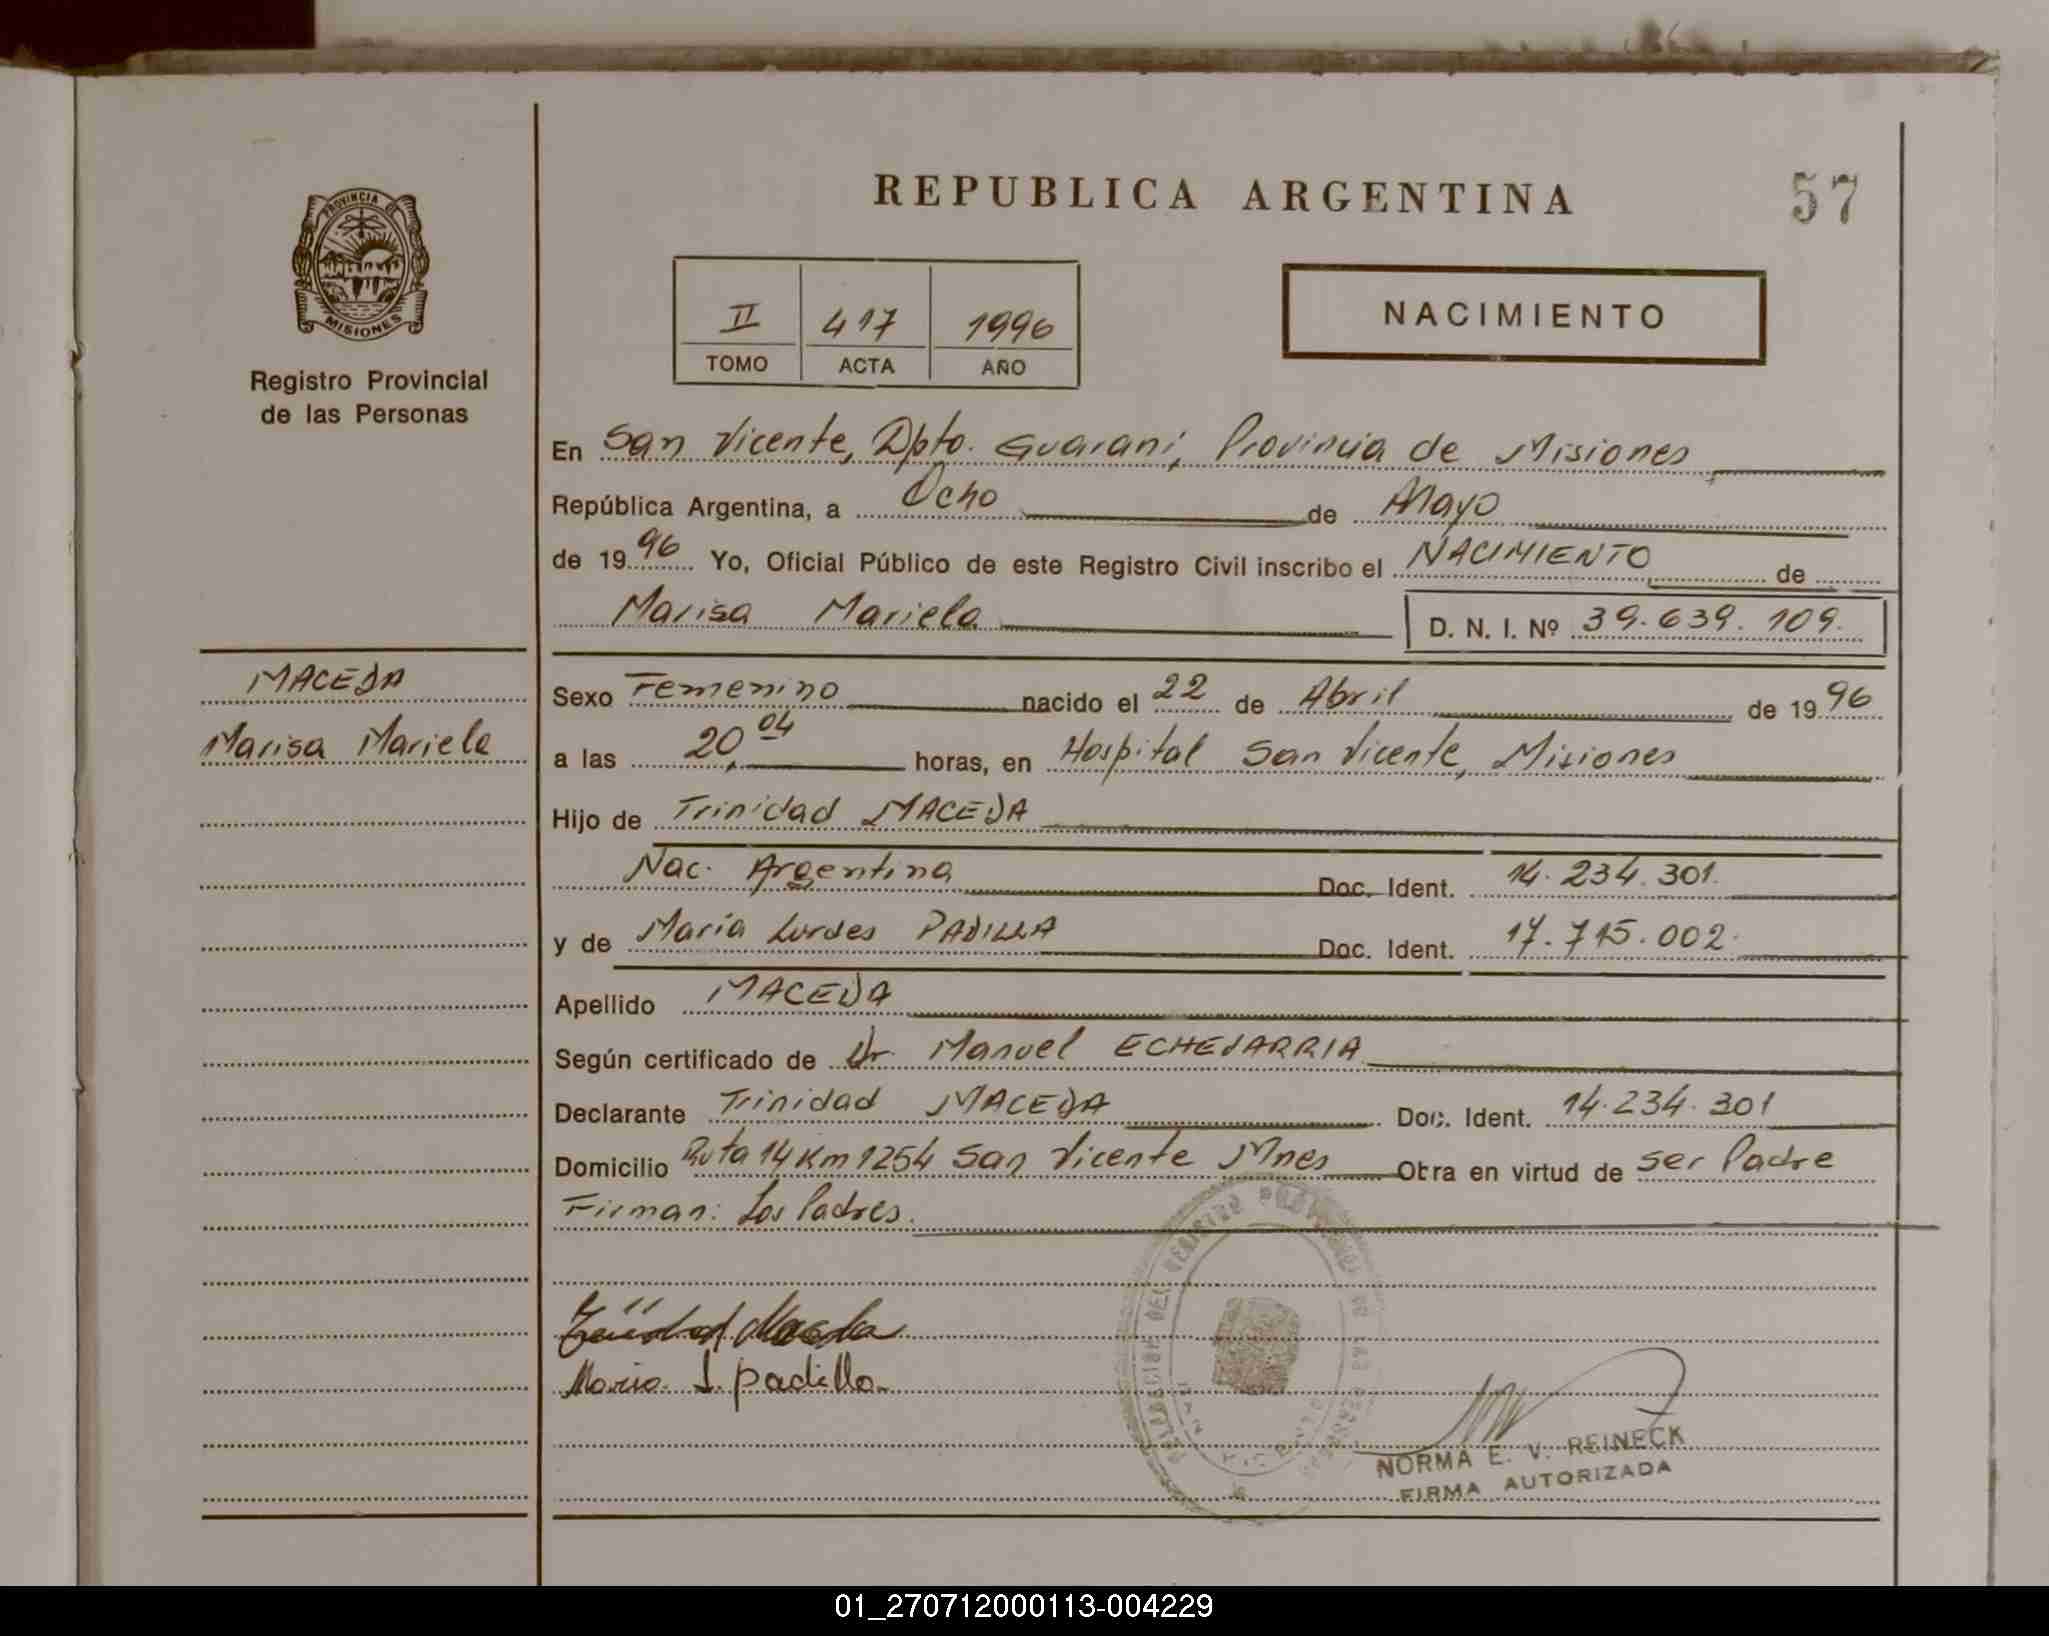 REPUBLICA ARGENTINA
57
PROVINCIA DE
MISIONES
Registro Provincial
de las Personas
II 417 1996
TOMO ACTA AÑO
NACIMIENTO
En San Vicente, Dpto. Guaraní, Provincia de Misiones
República Argentina, a Ocho de Mayo
de 1996 Yo, Oficial Público de este Registro Civil inscribo el NACIMIENTO de
Marisa Mariela D. N. I. Nº 39.639.109.
MACEDA
Marisa Mariela
Sexo Femenino nacido el 22 de Abril de 1996
a las 20,04 horas, en Hospital San Vicente, Misiones
Hijo de Trinidad MACEDA
Nac. Argentina Doc. Ident. 14.234.301.
y de María Lurdes PADILLA Doc. Ident. 17.715.002.
Apellido MACEDA
Según certificado de Dr. Manuel ECHEVARRIA
Declarante Trinidad MACEDA Doc. Ident. 14.234.301
Domicilio Ruta 14 Km 1254 San Vicente Mnes Obra en virtud de ser Padre
Firman: Los Padres.
Trinidad Maceda
Maria L. padilla
DELEGACION DEL REGISTRO PROVINCIAL DE LAS PERSONAS
SAN VICENTE
NORMA E. V. REINECK
FIRMA AUTORIZADA
01_270712000113-004229